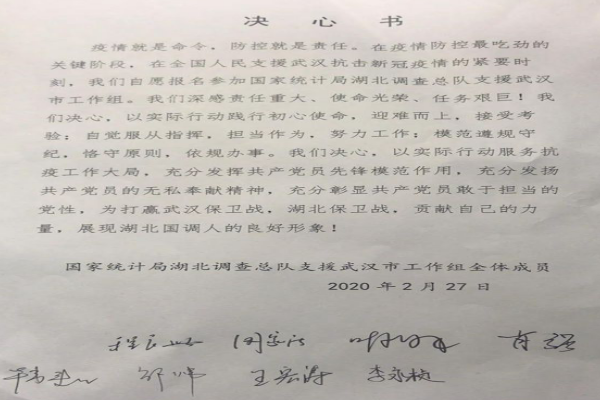 决心书
疫情就是命令，防控就是责任。在疫情防控最吃劲的
关键阶段，在全国人民支援武汉抗击新冠疫情的紧要时
刻，我们自愿报名参加国家统计局湖北调查总队支援武汉
市工作组。我们深感责任重大、使命光荣、任务艰巨！我
们决心，以实际行动践行初心使命，迎难而上，接受考
验；自觉服从指挥，担当作为，努力工作；模范遵规守
纪，恪守原则，依规办事。我们决心，以实际行动服务抗
疫工作大局，充分发挥共产党员先锋模范作用，充分发扬
共产党员的无私奉献精神，充分彰显共产党员敢于担当的
党性，为打赢武汉保卫战，湖北保卫战，贡献自己的力
量，展现湖北国调人的良好形象！
国家统计局湖北调查总队支援武汉市工作组全体成员
2020年2月27日
肖强
邹帅 王宏涛